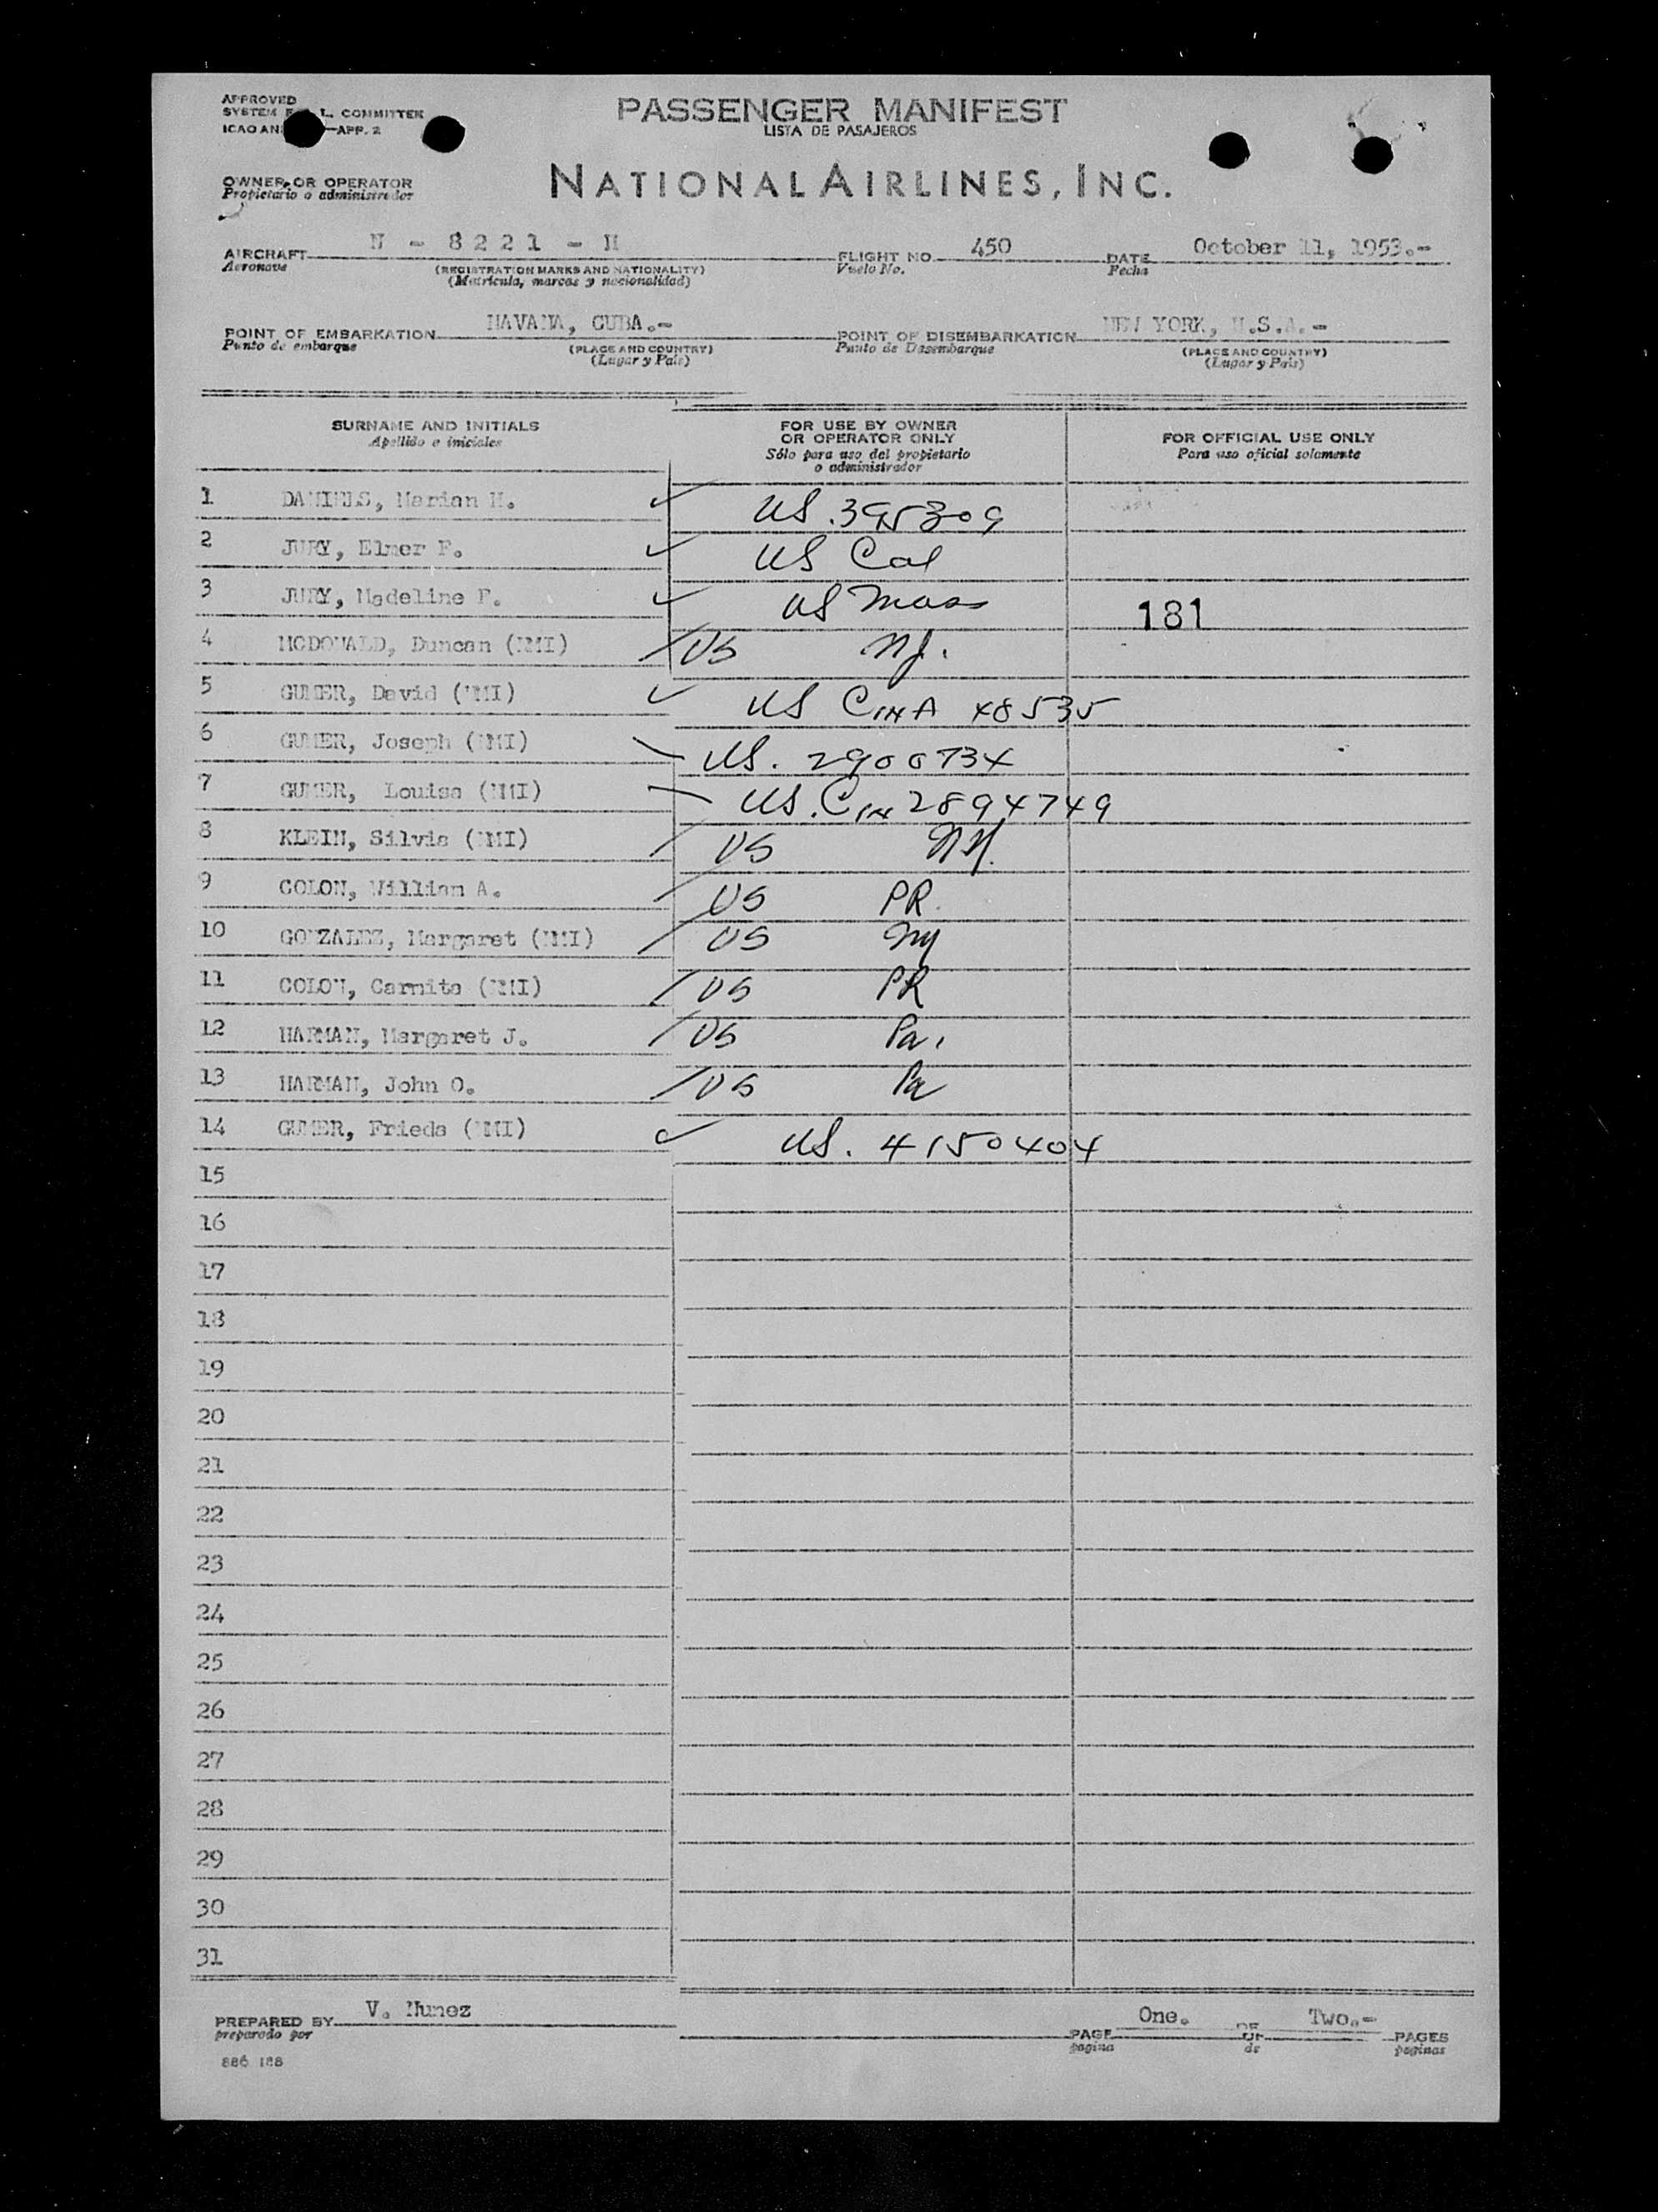 APPROVED
SYSTEM L. COMMITTEE
ICAO AN —APP. 2
PASSENGER MANIFEST
LISTA DE PASAJEROS
OWNER OR OPERATOR
Propietario o administrador
NATIONAL AIRLINES, INC.
AIRCRAFT N - 8221 - H FLIGHT NO. 450 DATE October 11, 1953.-
Aeronave (REGISTRATION MARKS AND NATIONALITY) Vuelo No. Fecha
(Matricula, marcas y nacionalidad)
POINT OF EMBARKATION HAVANA, CUBA.- POINT OF DISEMBARKATION NEW YORK, U.S.A.-
Punto de embarque (PLACE AND COUNTRY) Punto de Desembarque (PLACE AND COUNTRY)
(Lugar y País) (Lugar y País)
SURNAME AND INITIALS FOR USE BY OWNER OR OPERATOR ONLY FOR OFFICIAL USE ONLY
Apellido e iniciales Sólo para uso del propietario o administrador Para uso oficial solamente
1 DANIELS, Marian H. US. 395309
2 JURY, Elmer F. US Cal
3 JURY, Madeline F. US Mass 181
4 MCDONALD, Duncan (NMI) US NJ.
5 GUMER, David (NMI) US Cin A 48535
6 GUMER, Joseph (NMI) US. 2900734
7 GUMER, Louisa (NMI) US. Cin 2894749
8 KLEIN, Silvia (NMI) US NY.
9 COLON, William A. US PR.
10 GONZALEZ, Margaret (NMI) US NY
11 COLON, Carmita (NMI) US PR
12 HARMAN, Margaret J. US Pa.
13 HARMAN, John O. US Pa
14 GUMER, Frieda (NMI) US. 4150404
15
16
17
18
19
20
21
22
23
24
25
26
27
28
29
30
31
PREPARED BY V. Nunez PAGE One. OF Two.- PAGES
preparado por pagina de paginas
886 188